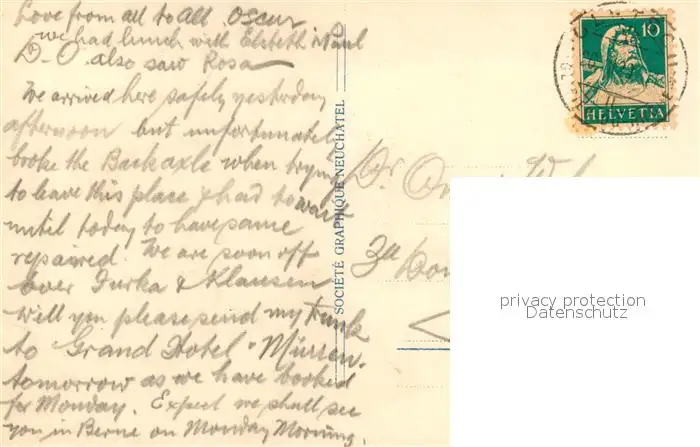 Love from all to all. Oscar
we had lunch with Elsbeth & Paul
D. O. also saw Rosa
We arrived here safely yesterday
afternoon but unfortunately
broke the Backaxle when trying
to leave this place & had to wait
until today to have same
repaired. We are soon off
over Furka & Klausen
will you please send my Trunk
to Grand Hotel "Mürren"
tomorrow as we have booked
for Monday. Expect we shall see
you in Berne on Monday Morning.
SOCIÉTÉ GRAPHIQUE NEUCHATEL
10
HELVETIA
Dr.
privacy protection
Datenschutz